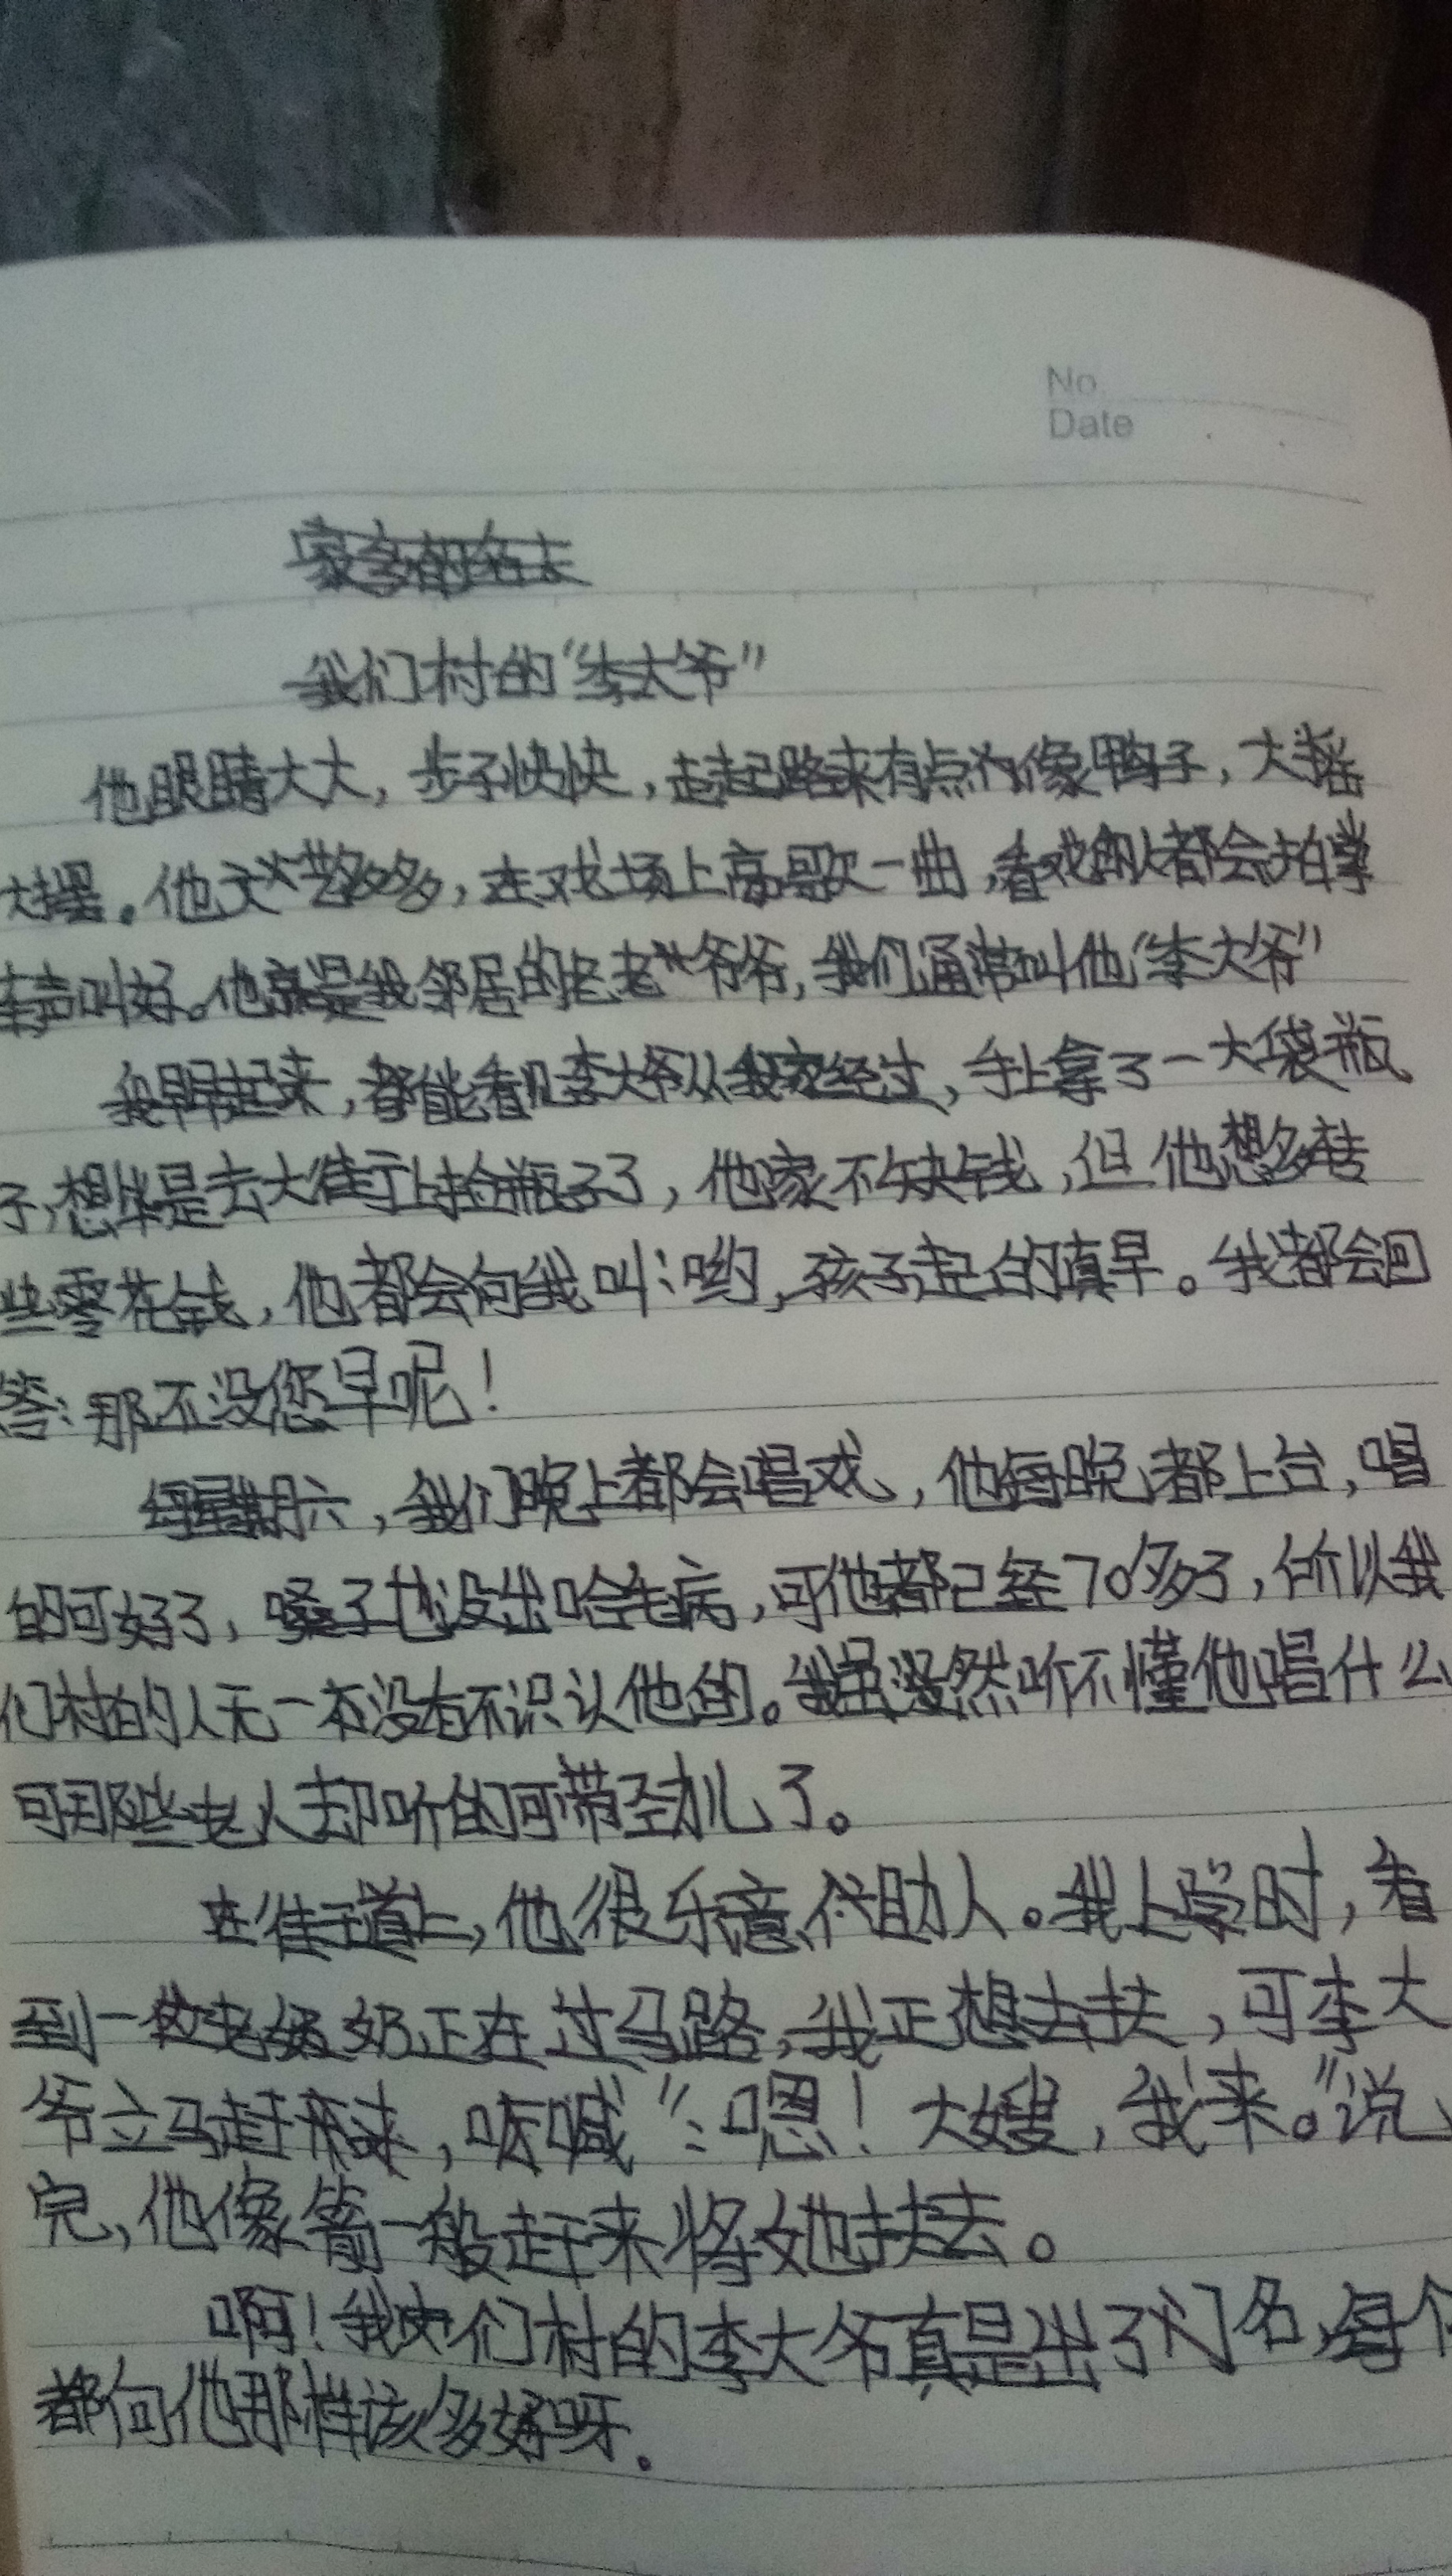 No.
Date
我们村的“李大爷”
他眼睛大大，步子快快，走起路来有点像鸭子，大摇
大摆。他文艺多多，在戏场上高歌一曲，看戏的人都会拍掌
声叫好。他就是我邻居的老爷爷，我们通常叫他“李大爷”
我早早起来，都能看见李大爷从我家经过，手上拿了一大袋瓶
子，想毕是去大街上捡瓶子了，他家不缺钱，但他想多转
些零花钱，他都会向我叫：哟，孩子起的真早。我都会回
答：那不没您早呢！
每星期六，我们晚上都会唱戏，他每晚都上台，唱
的可好了，嗓子也没出啥毛病，可他都已经70多了，所以我
们村的人无一不没有不识认他的。我虽然听不懂他唱什么
可那些老人却听的可带劲儿了。
在街道上，他很乐意代助人。我上学时，看
到一位老奶奶正在过马路，我正想去扶，可李大
爷立马赶来，喊“：嗯！大嫂，我来。”说
完，他像箭一般赶来将她扶去。
啊！我们村的李大爷真是出了门名，每个
都向他那样该多好呀.